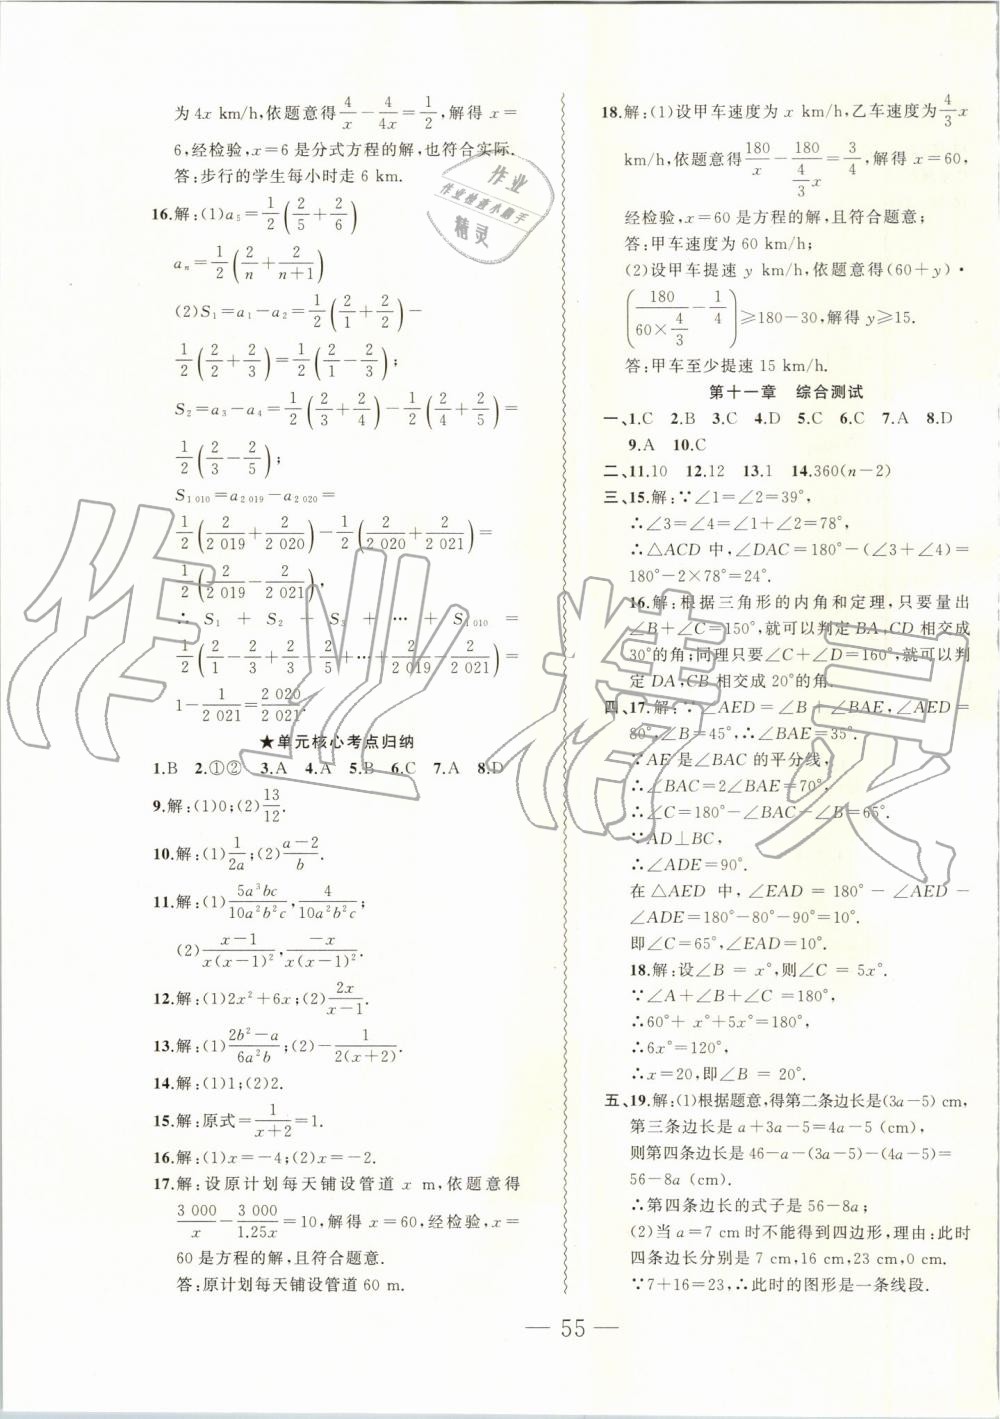 为4x km/h,依题意得4/x－4/4x＝1/2,解得 x＝
6,经检验,x＝6 是分式方程的解,也符合实际.
答:步行的学生每小时走 6 km.
16.解:(1)a₅＝1/2(2/5＋2/6)
aₙ＝1/2(2/n＋2/(n＋1))
(2)S₁＝a₁－a₂＝1/2(2/1＋2/2)－
1/2(2/2＋2/3)＝1/2(2/1－2/3);
S₂＝a₃－a₄＝1/2(2/3＋2/4)－1/2(2/4＋2/5)＝
1/2(2/3－2/5);
S₁₀₁₀＝a₂₀₁₉－a₂₀₂₀＝
1/2(2/2 019＋2/2 020)－1/2(2/2 020＋2/2 021)＝
1/2(2/2 019－2/2 021),
∴ S₁ ＋ S₂ ＋ S₃ ＋ … ＋ S₁₀₁₀ ＝
1/2(2/1－2/3＋2/3－2/5＋…＋2/2 019－2/2 021)＝
1－1/2 021＝2 020/2 021.
★单元核心考点归纳
1.B 2.①② 3.A 4.A 5.B 6.C 7.A 8.D
9.解:(1)0;(2)13/12.
10.解:(1)1/2a;(2)(a－2)/b.
11.解:(1)5a³bc/10a²b²c,4/10a²b²c;
(2)(x－1)/x(x－1)²,－x/x(x－1)².
12.解:(1)2x²＋6x;(2)2x/(x－1).
13.解:(1)(2b²－a)/6a²b;(2)－1/2(x＋2).
14.解:(1)1;(2)2.
15.解:原式＝1/(x＋2)＝1.
16.解:(1)x＝－4;(2)x＝－2.
17.解:设原计划每天铺设管道 x m,依题意得
3 000/x－3 000/1.25x＝10,解得 x＝60,经检验,x＝
60 是方程的解,且符合题意.
答:原计划每天铺设管道 60 m.
18.解:(1)设甲车速度为 x km/h,乙车速度为4/3x
km/h,依题意得180/x－180/(4/3x)＝3/4,解得 x＝60,
经检验,x＝60 是方程的解,且符合题意;
答:甲车速度为 60 km/h;
(2)设甲车提速 y km/h,依题意得(60＋y)·
(180/(60×4/3)－1/4)≥180－30,解得 y≥15.
答:甲车至少提速 15 km/h.
第十一章 综合测试
一、1.C 2.B 3.C 4.D 5.C 6.C 7.A 8.D
9.A 10.C
二、11.10 12.12 13.1 14.360(n－2)
三、15.解:∵∠1＝∠2＝39°,
∴∠3＝∠4＝∠1＋∠2＝78°,
∴△ACD 中,∠DAC＝180°－(∠3＋∠4)＝
180°－2×78°＝24°.
16.解:根据三角形的内角和定理,只要量出
∠B＋∠C＝150°,就可以判定 BA,CD 相交成
30°的角;同理只要∠C＋∠D＝160°,就可以判
定 DA,CB 相交成 20°的角.
四、17.解:∵∠AED＝∠B＋∠BAE,∠AED＝
80°,∠B＝45°,∴∠BAE＝35°.
∵AE 是∠BAC 的平分线,
∴∠BAC＝2∠BAE＝70°,
∴∠C＝180°－∠BAC－∠B＝65°.
∵AD⊥BC,
∴∠ADE＝90°.
在 △AED 中, ∠EAD ＝ 180° － ∠AED －
∠ADE＝180°－80°－90°＝10°.
即∠C＝65°,∠EAD＝10°.
18.解:设∠B ＝ x°,则∠C ＝ 5x°.
∵∠A＋∠B＋∠C ＝180°,
∴60°＋ x°＋5x°＝180°,
∴6x°＝120°,
∴x＝20,即∠B ＝ 20°.
五、19.解:(1)根据题意,得第二条边长是(3a－5) cm,
第三条边长是 a＋3a－5＝4a－5 (cm),
则第四条边长是 46－a－(3a－5)－(4a－5)＝
56－8a (cm).
∴第四条边长的式子是 56－8a;
(2)当 a＝7 cm时不能得到四边形,理由:此时
四条边长分别是 7 cm,16 cm,23 cm,0 cm.
∵7＋16＝23,∴此时的图形是一条线段.
— 55 —
作业
作业检查小助手
精灵
作业精灵